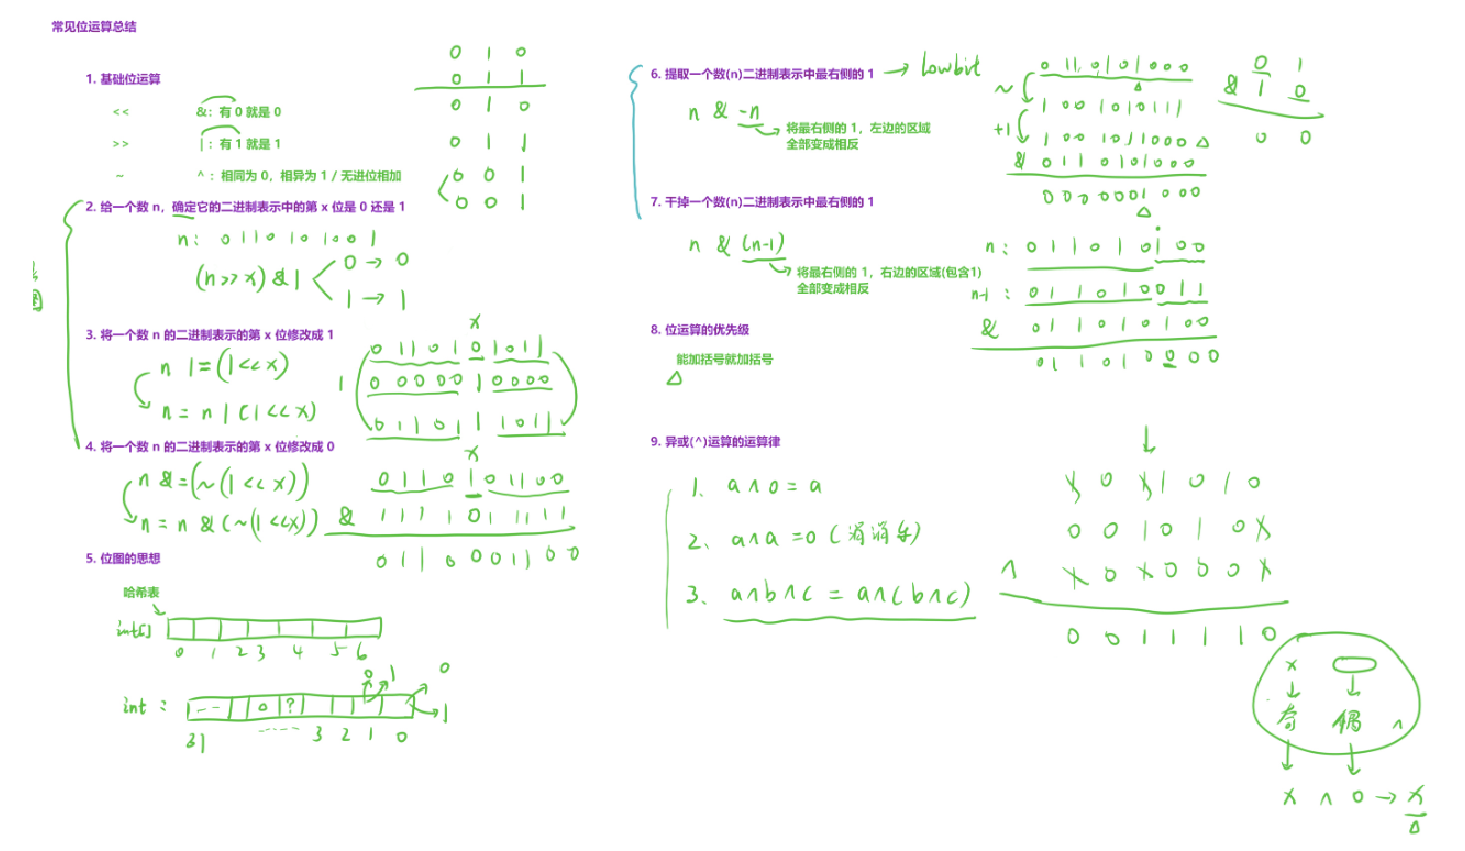 常见位运算总结
1. 基础位运算
<<
&：有 0 就是 0
>>
|：有 1 就是 1
~
^：相同为 0，相异为 1 / 无进位相加
0 1 0
0 1 1
0 1 0
0 1 1
0 0 1
0 0 1
2. 给一个数 n，确定它的二进制表示中的第 x 位是 0 还是 1
n: 0 1 1 0 1 0 1 0 0 1
(n >> x) & 1
0 → 0
1 → 1
3. 将一个数 n 的二进制表示的第 x 位修改成 1
n |= (1 << x)
n = n | (1 << x)
x
0 1 1 0 1 0 1 0 1 1
| 0 0 0 0 0 1 0 0 0 0
0 1 1 0 1 1 1 0 1 1
4. 将一个数 n 的二进制表示的第 x 位修改成 0
n &= (~(1 << x))
n = n & (~(1 << x))
x
0 1 1 0 1 0 1 1 0 0
& 1 1 1 1 0 1 1 1 1
0 1 1 0 0 0 1 1 0 0
5. 位图的思想
哈希表
int[]
0 1 2 3 4 5 6
0 1 0
int :
0 ?
1
31 3 2 1 0
6. 提取一个数(n)二进制表示中最右侧的 1 → lowbit
n & -n
将最右侧的 1，左边的区域
全部变成相反
0 1 1 0 1 0 1 0 0 0
~
1 0 0 1 0 1 0 1 1 1
+1
1 0 0 1 0 1 1 0 0 0
& 0 1 1 0 1 0 1 0 0 0
0 0 0 0 0 0 1 0 0 0
0 1
& 1 0
0 0
7. 干掉一个数(n)二进制表示中最右侧的 1
n & (n-1)
将最右侧的 1，右边的区域(包含1)
全部变成相反
n: 0 1 1 0 1 0 1 0 0
n-1 : 0 1 1 0 1 0 0 1 1
& 0 1 1 0 1 0 1 0 0
0 1 1 0 1 0 0 0 0
8. 位运算的优先级
能加括号就加括号
9. 异或(^)运算的运算律
1、a ^ 0 = a
2、a ^ a = 0 (消消乐)
3、a ^ b ^ c = a ^ (b ^ c)
0 1 0 1 0
0 0 1 0 1 0
^ 0 0 0 0
0 0 1 1 1 1 0
x
奇 偶 ^
x ^ 0 → x